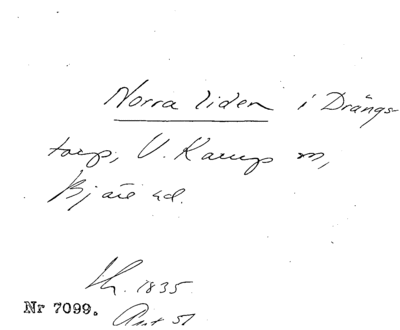 Norra liden i Drängs-
torp, V. Karup sn,
Bjäre hd.
Sh. 1835
Nr 7099.
Akt 51